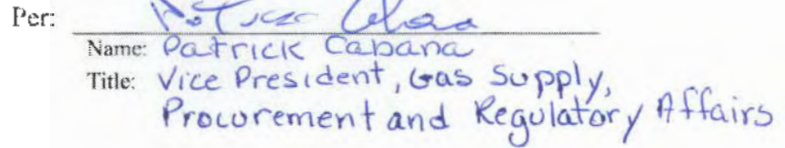 Per:
Name: Patrick Cabana
Title: Vice President, Gas Supply,
Procurement and Regulatory Affairs